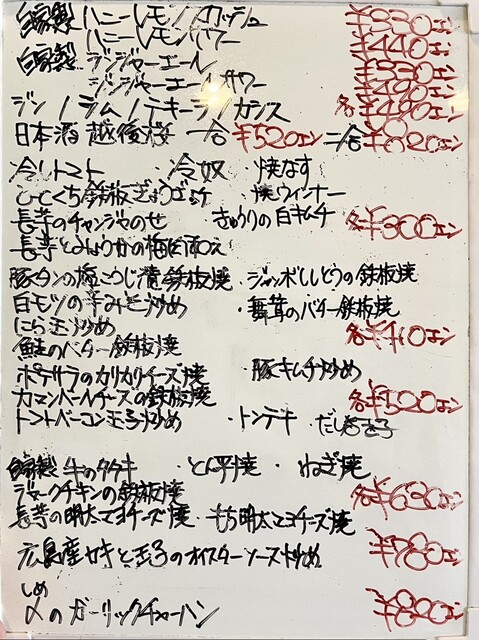 自家製 ハニーレモンスカッシュ ¥330エン
ハニーレモンサワー ¥440エン
自家製 ジンジャーエール ¥330エン
ジンジャーエールサワー ¥490エン
ジン/ラム/テキーラ/カシス 各¥490エン
日本酒 越後桜 一合 ¥520エン 二合 ¥820エン
冷しトマト 冷奴 焼なす
ひとくち鉄板ぎょうざ 焼ウインナー
長芋のチャンジャのせ きゅうりの白キムチ 各¥300エン
長芋とみょうがの梅和え
豚タンの塩こうじ漬鉄板焼 ・ジャンボししとうの鉄板焼
白モツの辛みそ炒め ・舞茸のバター鉄板焼
にら玉炒め 各¥410エン
鮭のバター鉄板焼
ポテサラのカリカリチーズ焼 豚キムチ炒め
カマンベールチーズの鉄板焼 各¥520エン
トマトベーコン玉子炒め ・トンテキ だし巻玉子
自家製 牛のタタキ ・とん平焼 ・ねぎ焼
ジャークチキンの鉄板焼 各¥630エン
長芋の明太マヨチーズ焼 もち明太マヨチーズ焼
広島産カキと玉子のオイスターソース炒め ¥780エン
しめ
〆のガーリックチャーハン ¥820エン